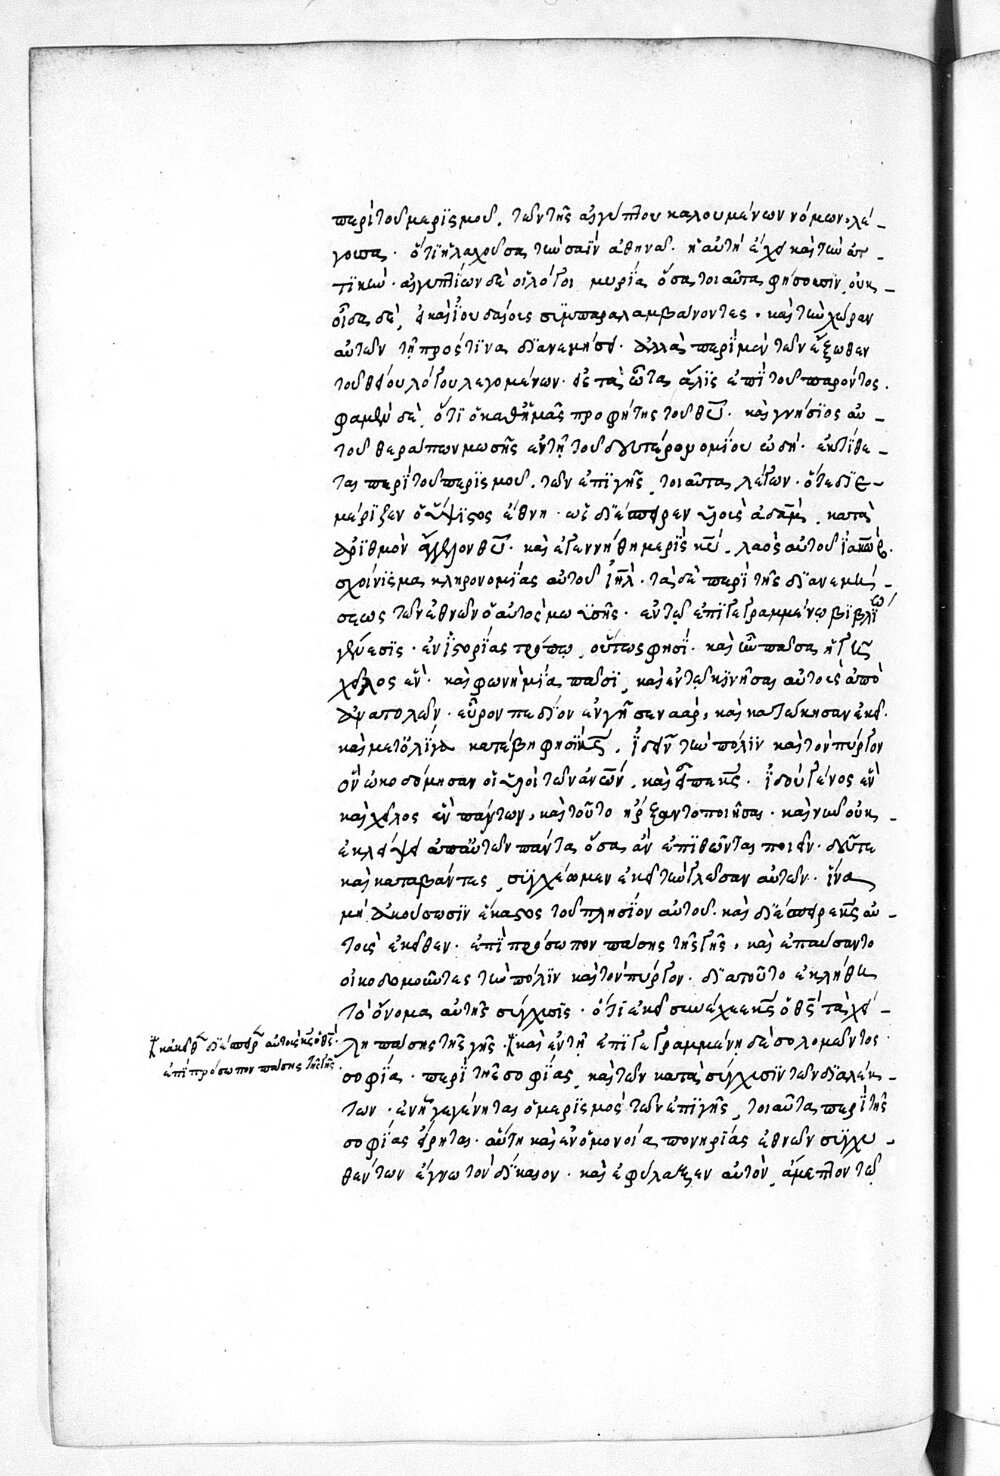 περὶ τοῦ μερισμοῦ. τῶν τῆς αἰγύπτου καλουμένων νόμων. λέ-
γουσα. ὅτι ἡ λαχοῦσα τὴν σαῒν ἀθηνᾶ. ἡ αὐτὴ ἔχει καὶ τὴν ἀτ-
τικήν. αἰγυπτίων δὲ οἱ λόγιοι μυρία ὅσα τοιαῦτα φήσουσιν. οὐκ-
οἶδα δὲ, εἰ καὶ ἰουδαίους συμπαραλαμβάνοντες. καὶ τὴν χώραν
αὐτῶν τῆ πρός τινα διανεμήσει. ἀλλὰ περὶ μὲν τῶν ἔξωθεν
τοῦ θείου λόγου λεγομένων. εἰς ταῦτα ἅλις ἐπὶ τοῦ παρόντος.
φαμὲν δὲ, ὅτι ὁ καθ' ἡμᾶς προφήτης τοῦ θυ. καὶ γνήσιος αὐ-
τοῦ θεράπων μωσῆς ἐν τῆ τοῦ δευτερονομίου ὠδῆ. ἐκτίθε-
ται περὶ τοῦ περισμοῦ. τῶν ἐπὶ γῆς, τοιαῦτα λέγων. ὅτε διε-
μέριζεν ὁ ὕψιστος ἔθνη. ὡς διέσπειρεν υἱοὺς ἀδάμ, κατὰ
ἀριθμὸν ἀγγέλον θυ. καὶ ἐγεννήθη μερὶς κυ, λαὸς αὐτοῦ ἰακώβ.
σχοίνισμα κληρονομίας αὐτοῦ ἰηλ. τὰ δὲ περὶ τῆς διανεμή-
σεως τῶν ἐθνῶν ὁ αὐτὸς μωυσῆς. ἐν τῶ ἐπιγεγραμμένω βιβλίω
γένεσις. ἐν ἱστορίας τρόπω, οὕτως φησί. καὶ ἦν πᾶσα ἡ γῆ
χεῖλος ἕν. καὶ φωνὴ μία πᾶσι, καὶ ἐν τῶ κινῆσαι αὐτοὺς ἀπὸ
ἀνατολῶν. εὗρον πεδίον ἐν γῆ σενααρ, καὶ κατώκησαν ἐκεῖ.
καὶ μετ' ὀλίγα κατέβη φησὶ κς. ἰδεῖν τὴν πόλιν καὶ τὸν πύργον
ὃν ὠκοδόμησαν οἱ υἱοὶ τῶν ἀνων, καὶ εἶπε κς. ἰδοὺ γένος ἓν
καὶ χεῖλος ἓν πάντων, καὶ τοῦτο ἤρξαντο ποιῆσαι. καὶ νῦν οὐκ-
ἐκλείψει ἀπ' αὐτῶν πάντα ὅσα ἂν ἐπιθῶνται ποιεῖν. δεῦτε
καὶ καταβάντες, συγχέωμεν ἐκεῖ τὴν γλῶσσαν αὐτῶν. ἵνα
μὴ ἀκούσωσιν ἕκαστος τοῦ πλησίον αὐτοῦ. καὶ διέσπειρε κς αὐ-
τοὺς ἐκεῖθεν. ἐπὶ πρόσωπον πάσης τῆς γῆς, καὶ ἐπαύσαντο
οἰκοδομοῦντες τὴν πόλιν καὶ τὸν πύργον. διατοῦτο ἐκλήθη
τὸ ὄνομα αὐτῆς σύγχυσις. ὅτι ἐκεῖ συνέχεε κς ὁ θς τὰ χεί-
λη πάσης τῆς γῆς. καὶ ἐν τῆ ἐπιγεγραμμένη δὲ σολομῶντος.
κἀκεῖθεν διέσπειρεν αὐτοὺς κς ὁ θς.
ἐπὶ πρόσωπον πάσης τῆς γῆς.
σοφία. περὶ τῆς σοφίας, καὶ τῶν κατὰ σύγχυσιν τῶν διαλέκ-
των. ἐν ἧ γεγένηται ὁ μερισμὸς τῶν ἐπὶ γῆς, τοιαῦτα περὶ τῆς
σοφίας εἴρηται. αὕτη καὶ ἐν ὁμονοία πονηρίας ἐθνῶν συγχυ-
θέντων ἔγνω τὸν δίκαιον. καὶ ἐφύλαξεν αὐτὸν, ἄμεπτον τῶ